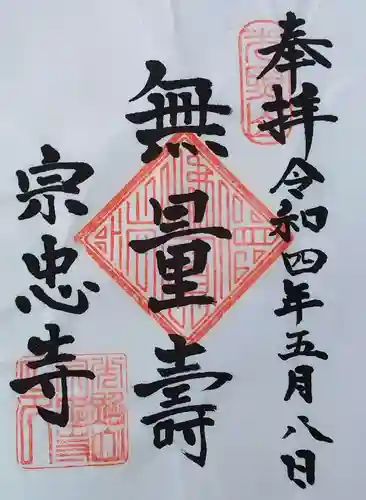 奉拝 令和四年五月八日
無量壽
宗忠寺